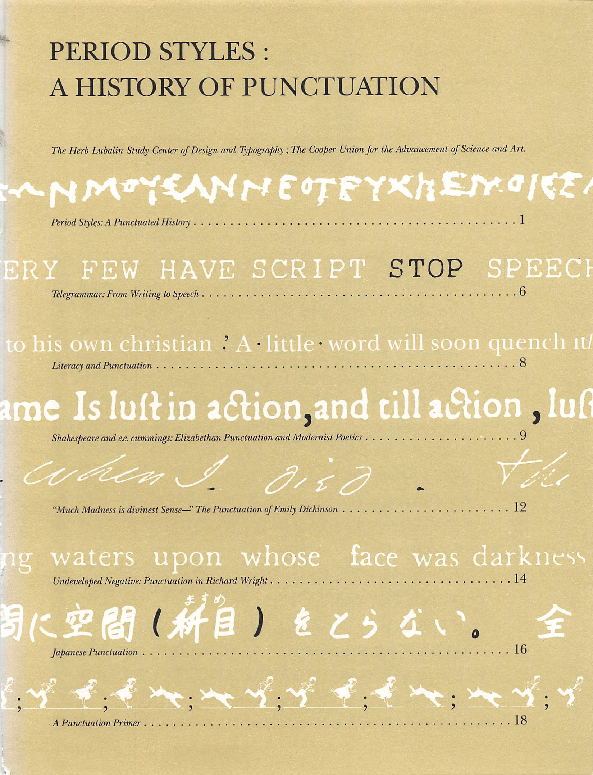 PERIOD STYLES :
A HISTORY OF PUNCTUATION
The Herb Lubalin Study Center of Design and Typography ; The Cooper Union for the Advancement of Science and Art.
Period Styles: A Punctuated History . . . . . . . . . . . . . . . . . . . . . . . . . . . . . . . . . . . . . . . . . . 1
ERY FEW HAVE SCRIPT STOP SPEECH
Telegrammar: From Writing to Speech . . . . . . . . . . . . . . . . . . . . . . . . . . . . . . . . . . . . . . . . . 6
to his own christian ? A · little · word will soon quench it/
Literacy and Punctuation . . . . . . . . . . . . . . . . . . . . . . . . . . . . . . . . . . . . . . . . . . . . . . . 8
ame Is luſt in action,and till action , luſ
Shakespeare and e.e. cummings: Elizabethan Punctuation and Modernist Poetics . . . . . . . . . . . . . . . . . . . . . 9
when I - died - the
“Much Madness is divinest Sense—” The Punctuation of Emily Dickinson . . . . . . . . . . . . . . . . . . . . . . . . 12
ng waters upon whose face was darkness
Undeveloped Negative: Punctuation in Richard Wright . . . . . . . . . . . . . . . . . . . . . . . . . . . . . . . . . 14
ますめ
間に空間(桝目)をとらない。 全
Japanese Punctuation . . . . . . . . . . . . . . . . . . . . . . . . . . . . . . . . . . . . . . . . . . . . . . . . . 16
; ; ; ; ; ;
A Punctuation Primer . . . . . . . . . . . . . . . . . . . . . . . . . . . . . . . . . . . . . . . . . . . . . . . . . 18